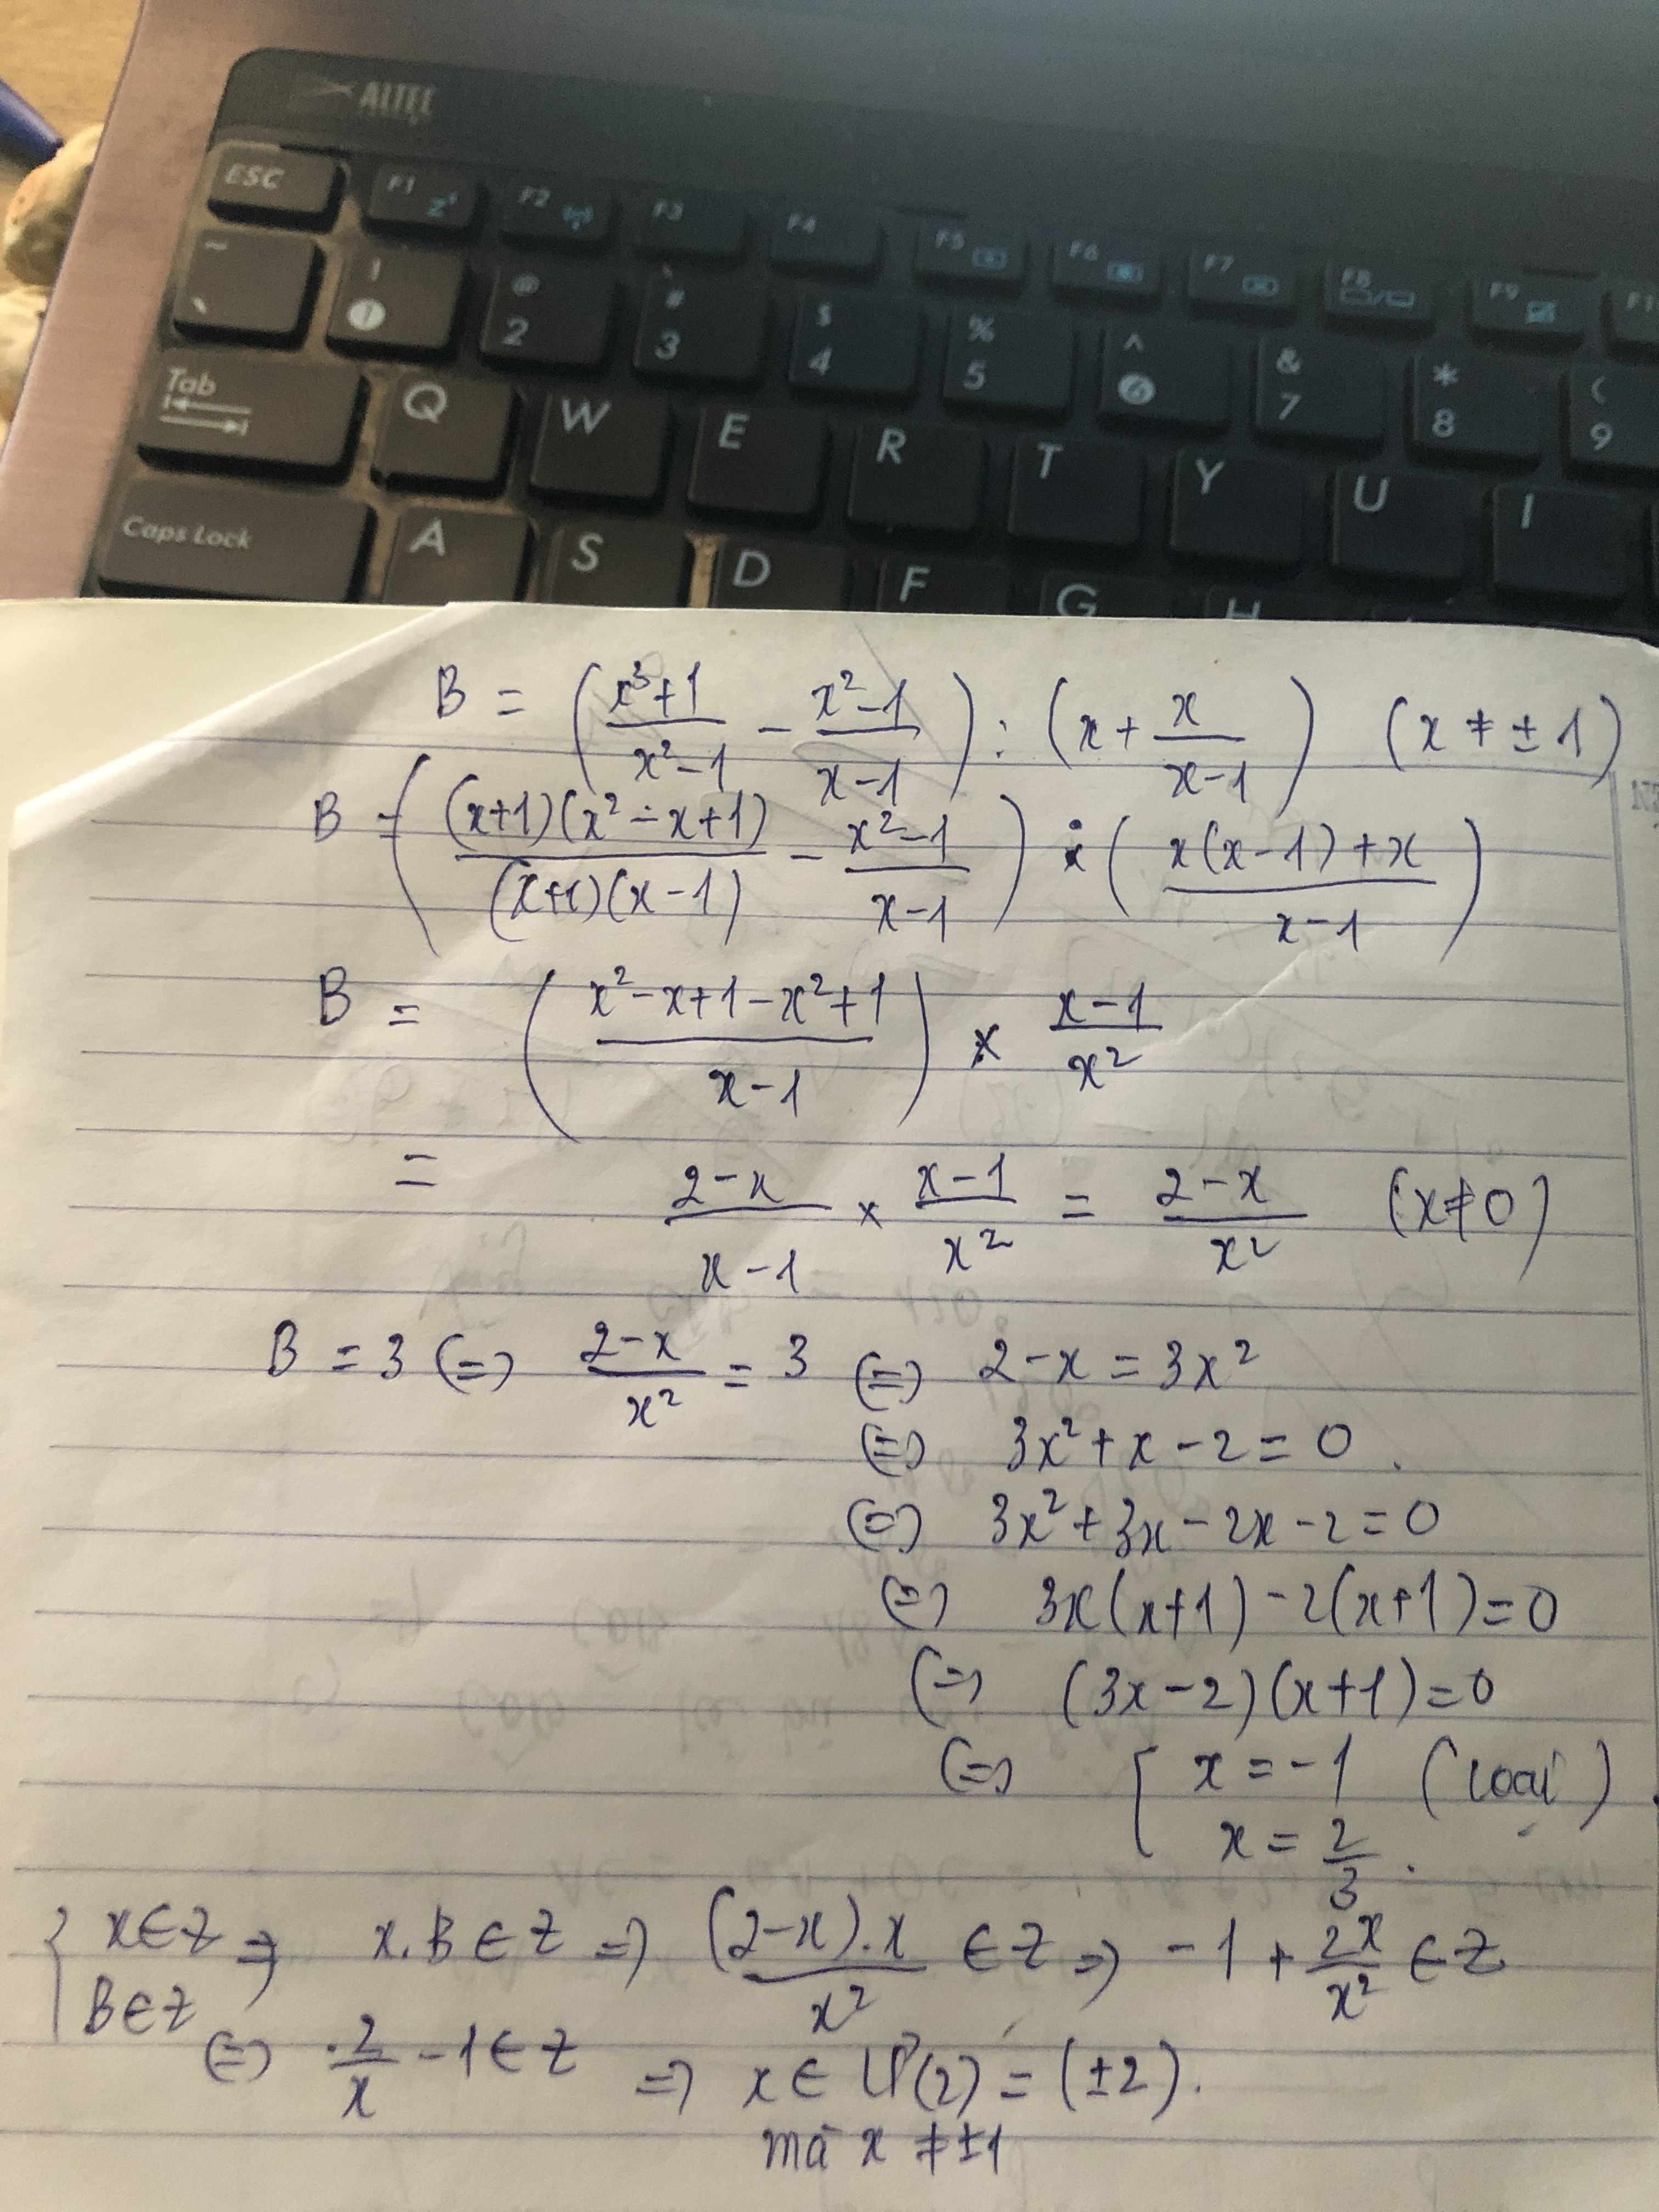 ALTEC
ESC F1 F2 F3 F4 F5 F6 F7 F8 F9 F1
~ ` ! 1 @ 2 # 3 $ 4 % 5 ^ 6 & 7 * 8 ( 9
Tab Q W E R T Y U I
Caps Lock A S D F G H
B = ( (x³+1)/(x²-1) - (x²-1)/(x-1) ) : ( x + x/(x-1) ) (x ≠ ±1)
B = ( (x+1)(x²-x+1)/((x+1)(x-1)) - (x²-1)/(x-1) ) : ( (x(x-1)+x)/(x-1) )
B = ( (x²-x+1-x²+1)/(x-1) ) × (x-1)/x²
= (2-x)/(x-1) × (x-1)/x² = (2-x)/x² (x≠0)
B = 3 (=) (2-x)/x² = 3 (=) 2-x = 3x²
(=) 3x²+x-2=0.
(=) 3x²+3x-2x-2=0
(=) 3x(x+1)-2(x+1)=0
(=) (3x-2)(x+1)=0
(=) [ x=-1 (loại)
x = 2/3.
{ x∈Z B∈Z => x.B∈Z => (2-x).x/x² ∈Z => -1 + 2x/x² ∈Z
(=) 2/x - 1∈Z => x∈ Ư(2) = (±2).
mà x ≠ ±1